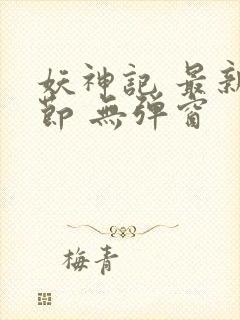 妖神記 最新
節 無彈窗
梅青